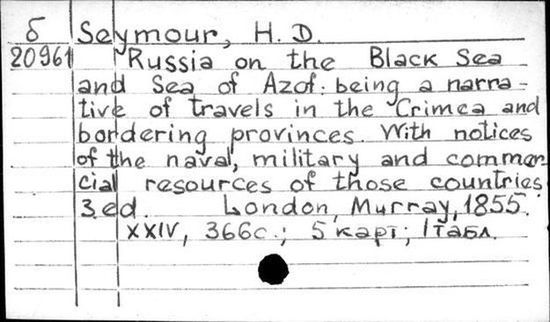 б Seymour, H. D.
20961 Russia on the Black Sea
and Sea of Azof: being a narra-
tive of travels in the Crimea and
bordering provinces. With notices
of the naval, military and commer
cial resources of those countries
3.ed. London, Murray, 1855.
XXIV, 366с.; 5 карт; 1 табл.